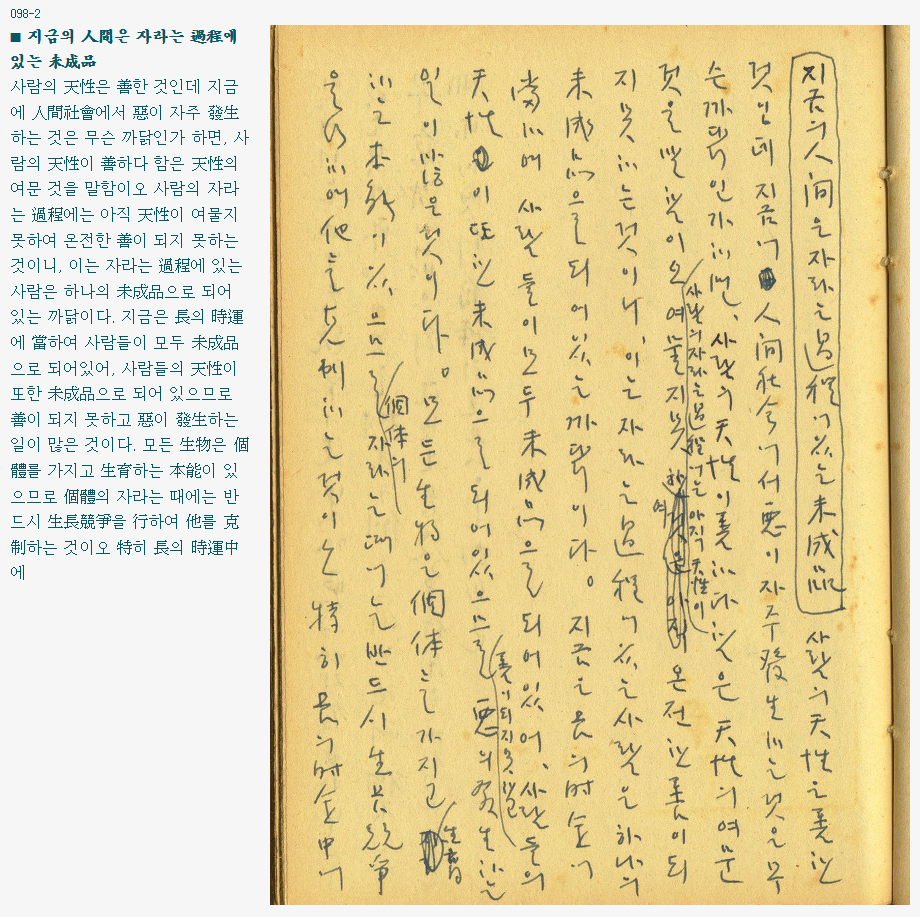 098-2
■ 지금의 人間은 자라는 過程에
있는 未成品
사람의 天性은 善한 것인데 지금
에 人間社會에서 惡이 자주 發生
하는 것은 무슨 까닭인가 하면, 사
람의 天性이 善하다 함은 天性의
여문 것을 말함이오 사람의 자라
는 過程에는 아직 天性이 여물지
못하여 온전한 善이 되지 못하는
것이니, 이는 자라는 過程에 있는
사람은 하나의 未成品으로 되어
있는 까닭이다. 지금은 長의 時運
에 當하여 사람들이 모두 未成品
으로 되어있어, 사람들의 天性이
또한 未成品으로 되어 있으므로
善이 되지 못하고 惡이 發生하는
일이 많은 것이다. 모든 生物은 個
體를 가지고 生育하는 本能이 있
으므로 個體의 자라는 때에는 반
드시 生長競爭을 行하여 他를 克
制하는 것이오 特히 長의 時運中
에
지금의 人間은 자라는 過程에 있는 未成品 사람의 天性은 善한
것인데 지금에 人間社会에서 悪이 자주 發生하는 것은 무
슨 까닭인가 하면, 사람의 天性이 善하다 함은 天性의 여문
것을 말함이오 사람의 자라는 過程에는 아직 天性이 여물지 못하여 온전한 善이 되
지 못하는 것이니, 이는 자라는 過程에 있는 사람은 하나의
未成品으로 되어 있는 까닭이다。 지금은 長의 時運에
當하여 사람들이 모두 未成品으로 되어 있어, 사람들의
天性이 또한 未成品으로 되어 있으므로 善이 되지 못하고 悪의 發生하는
일이 많은 것이다。 모든 生物은 個体를 가지고 生育
하는 本能이 있으므로 個体의 자라는 때에는 반드시 生長競爭
을 行하여 他를 克制하는 것이오 特히 長의 時運中에